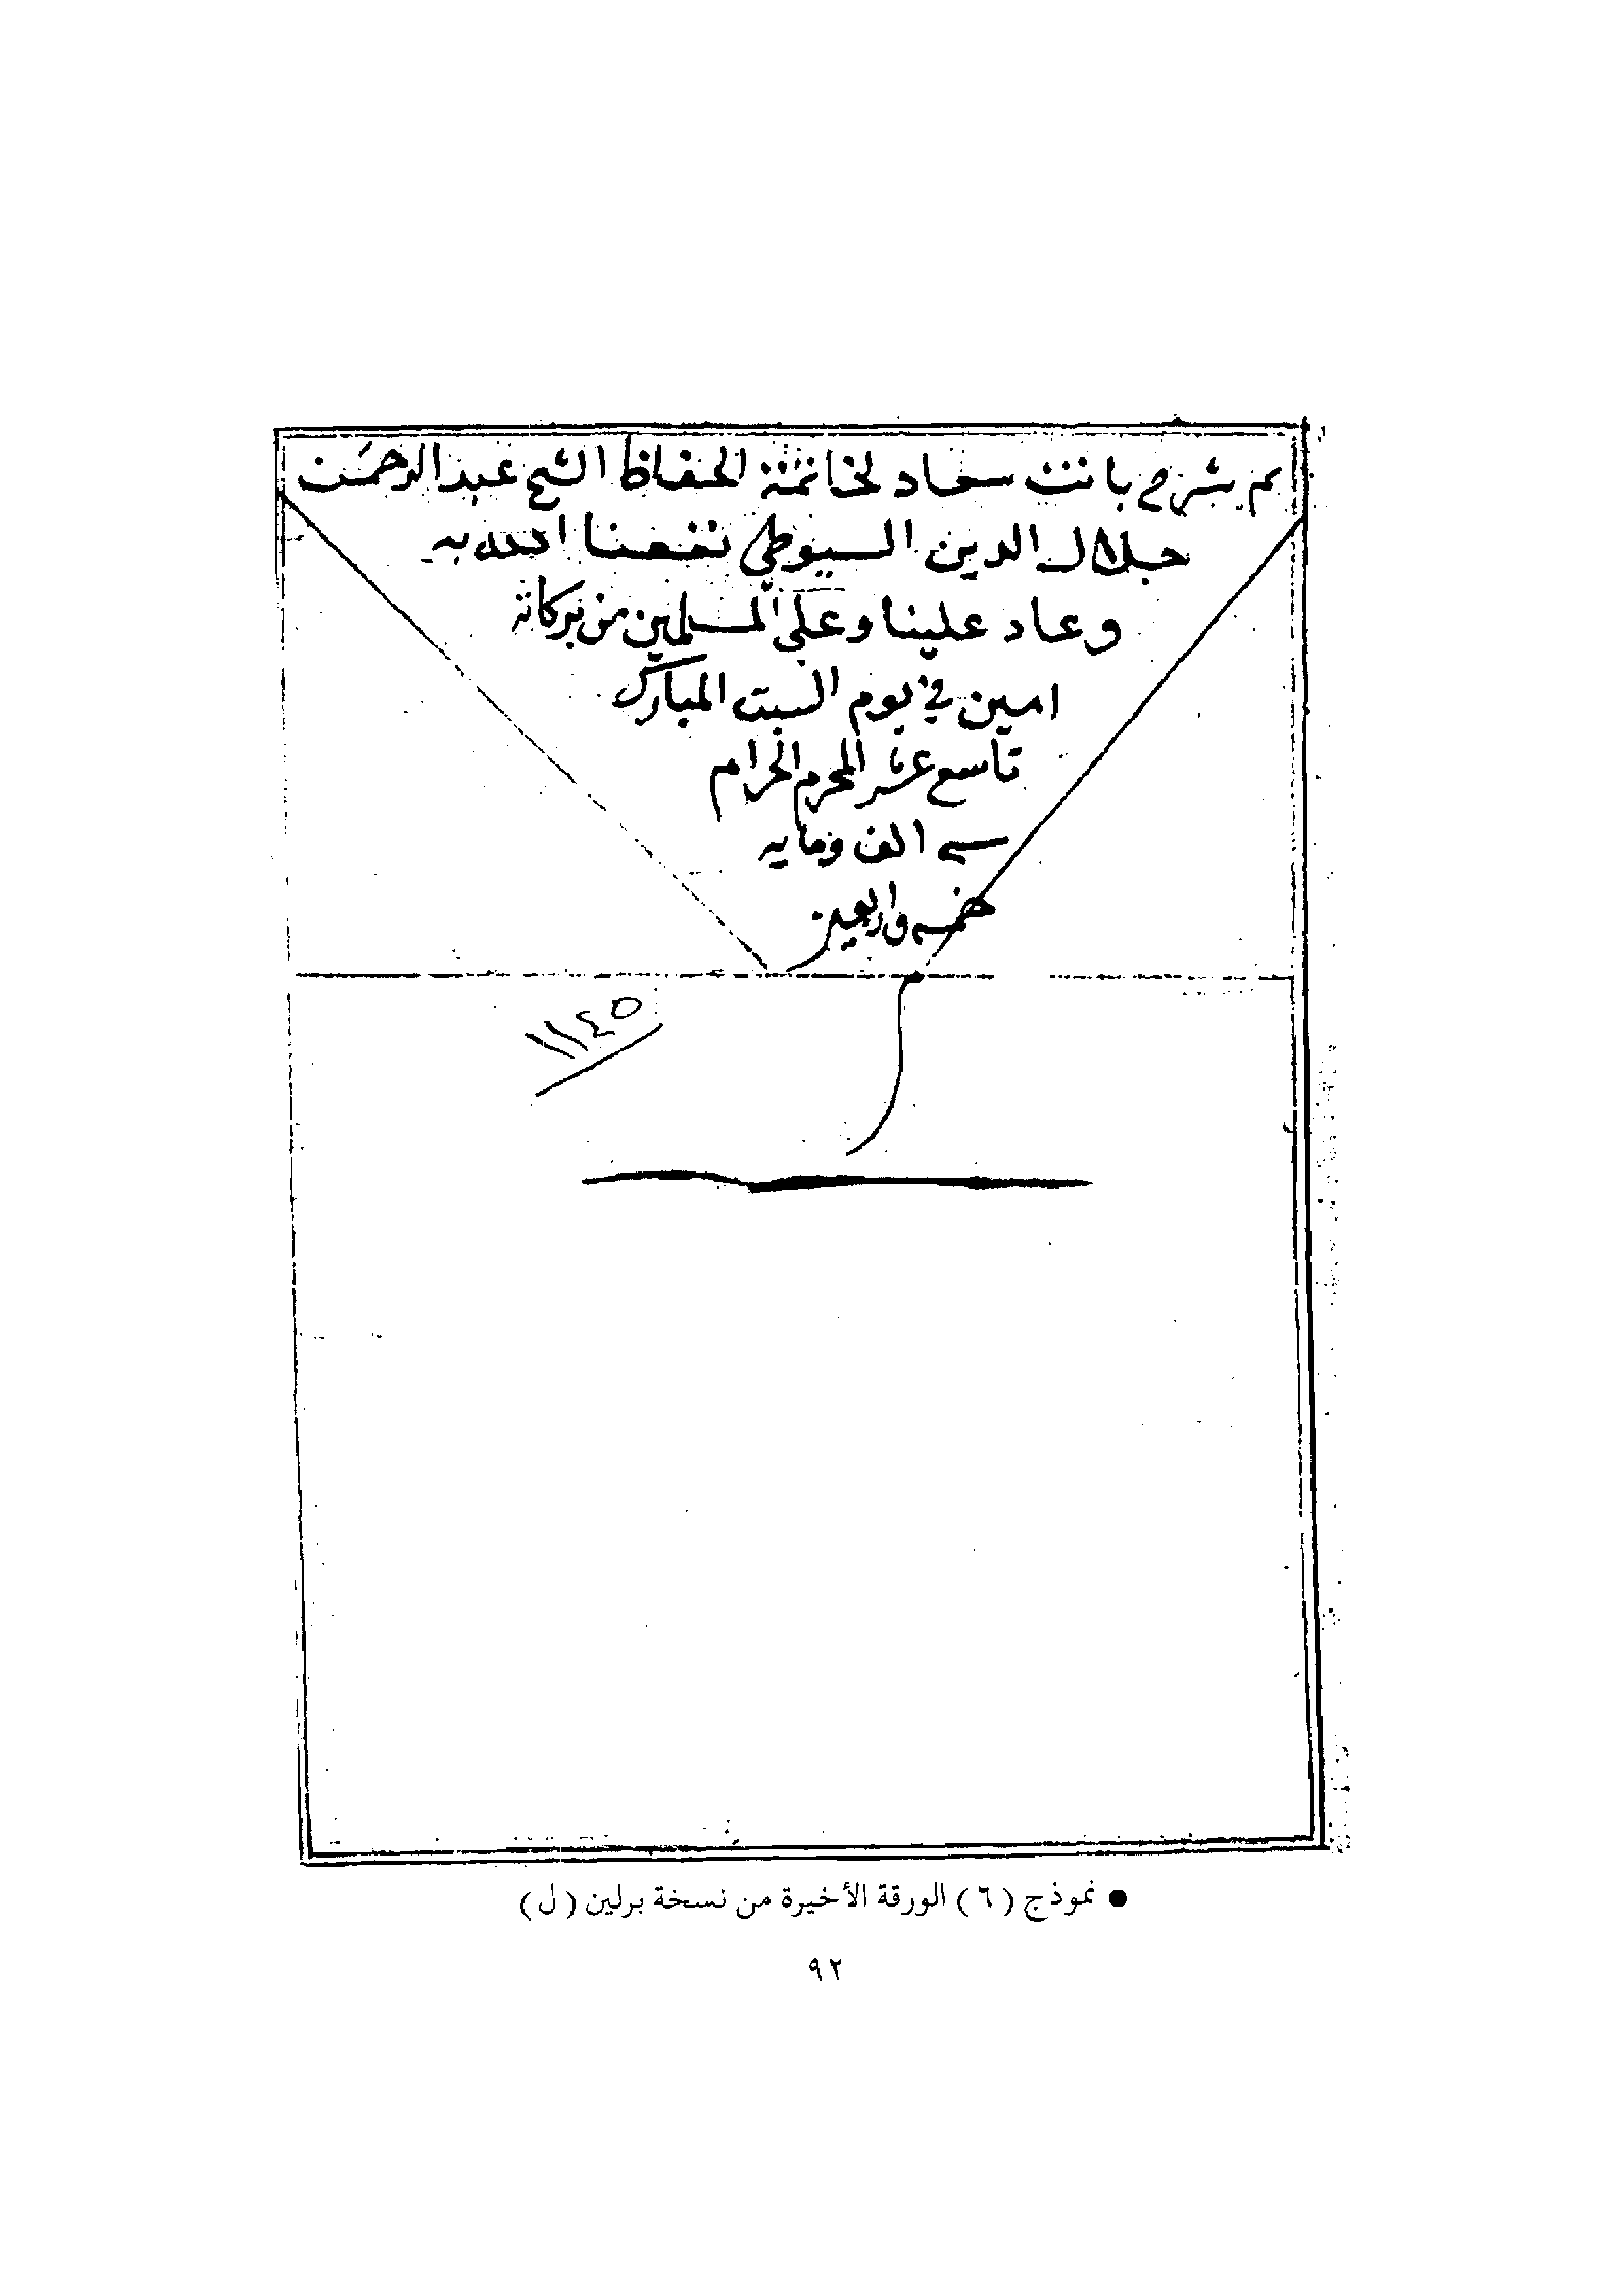 تم شرح بانت سعاد لخاتمة الحفاظ الشيخ عبد الرحمن
جلال الدين السيوطي نفعنا الله به
وعاد علينا وعلى المسلمين من بركاته
امين في يوم السبت المبارك
تاسع عشر المحرم الحرام
سنه الف ومايه
خمسه واربعين
١١٤٥
● نموذج (٦) الورقة الأخيرة من نسخة برلين (ل)
٩٢